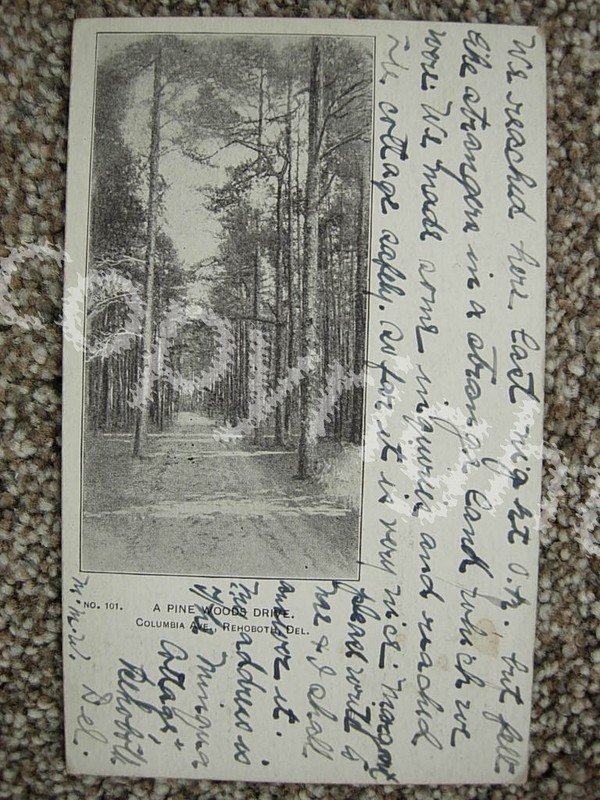 We reached here last night O.K. but felt
like strangers in a strange land which we
were. We made some inquiries and reached
the cottage safely. So far it is very nice.
please write to
me & I shall
answer it.
My address is
Cottage
Rehoboth
Del.
NO. 101.
A PINE WOODS DRIVE.
COLUMBIA AVE., REHOBOTH, DEL.